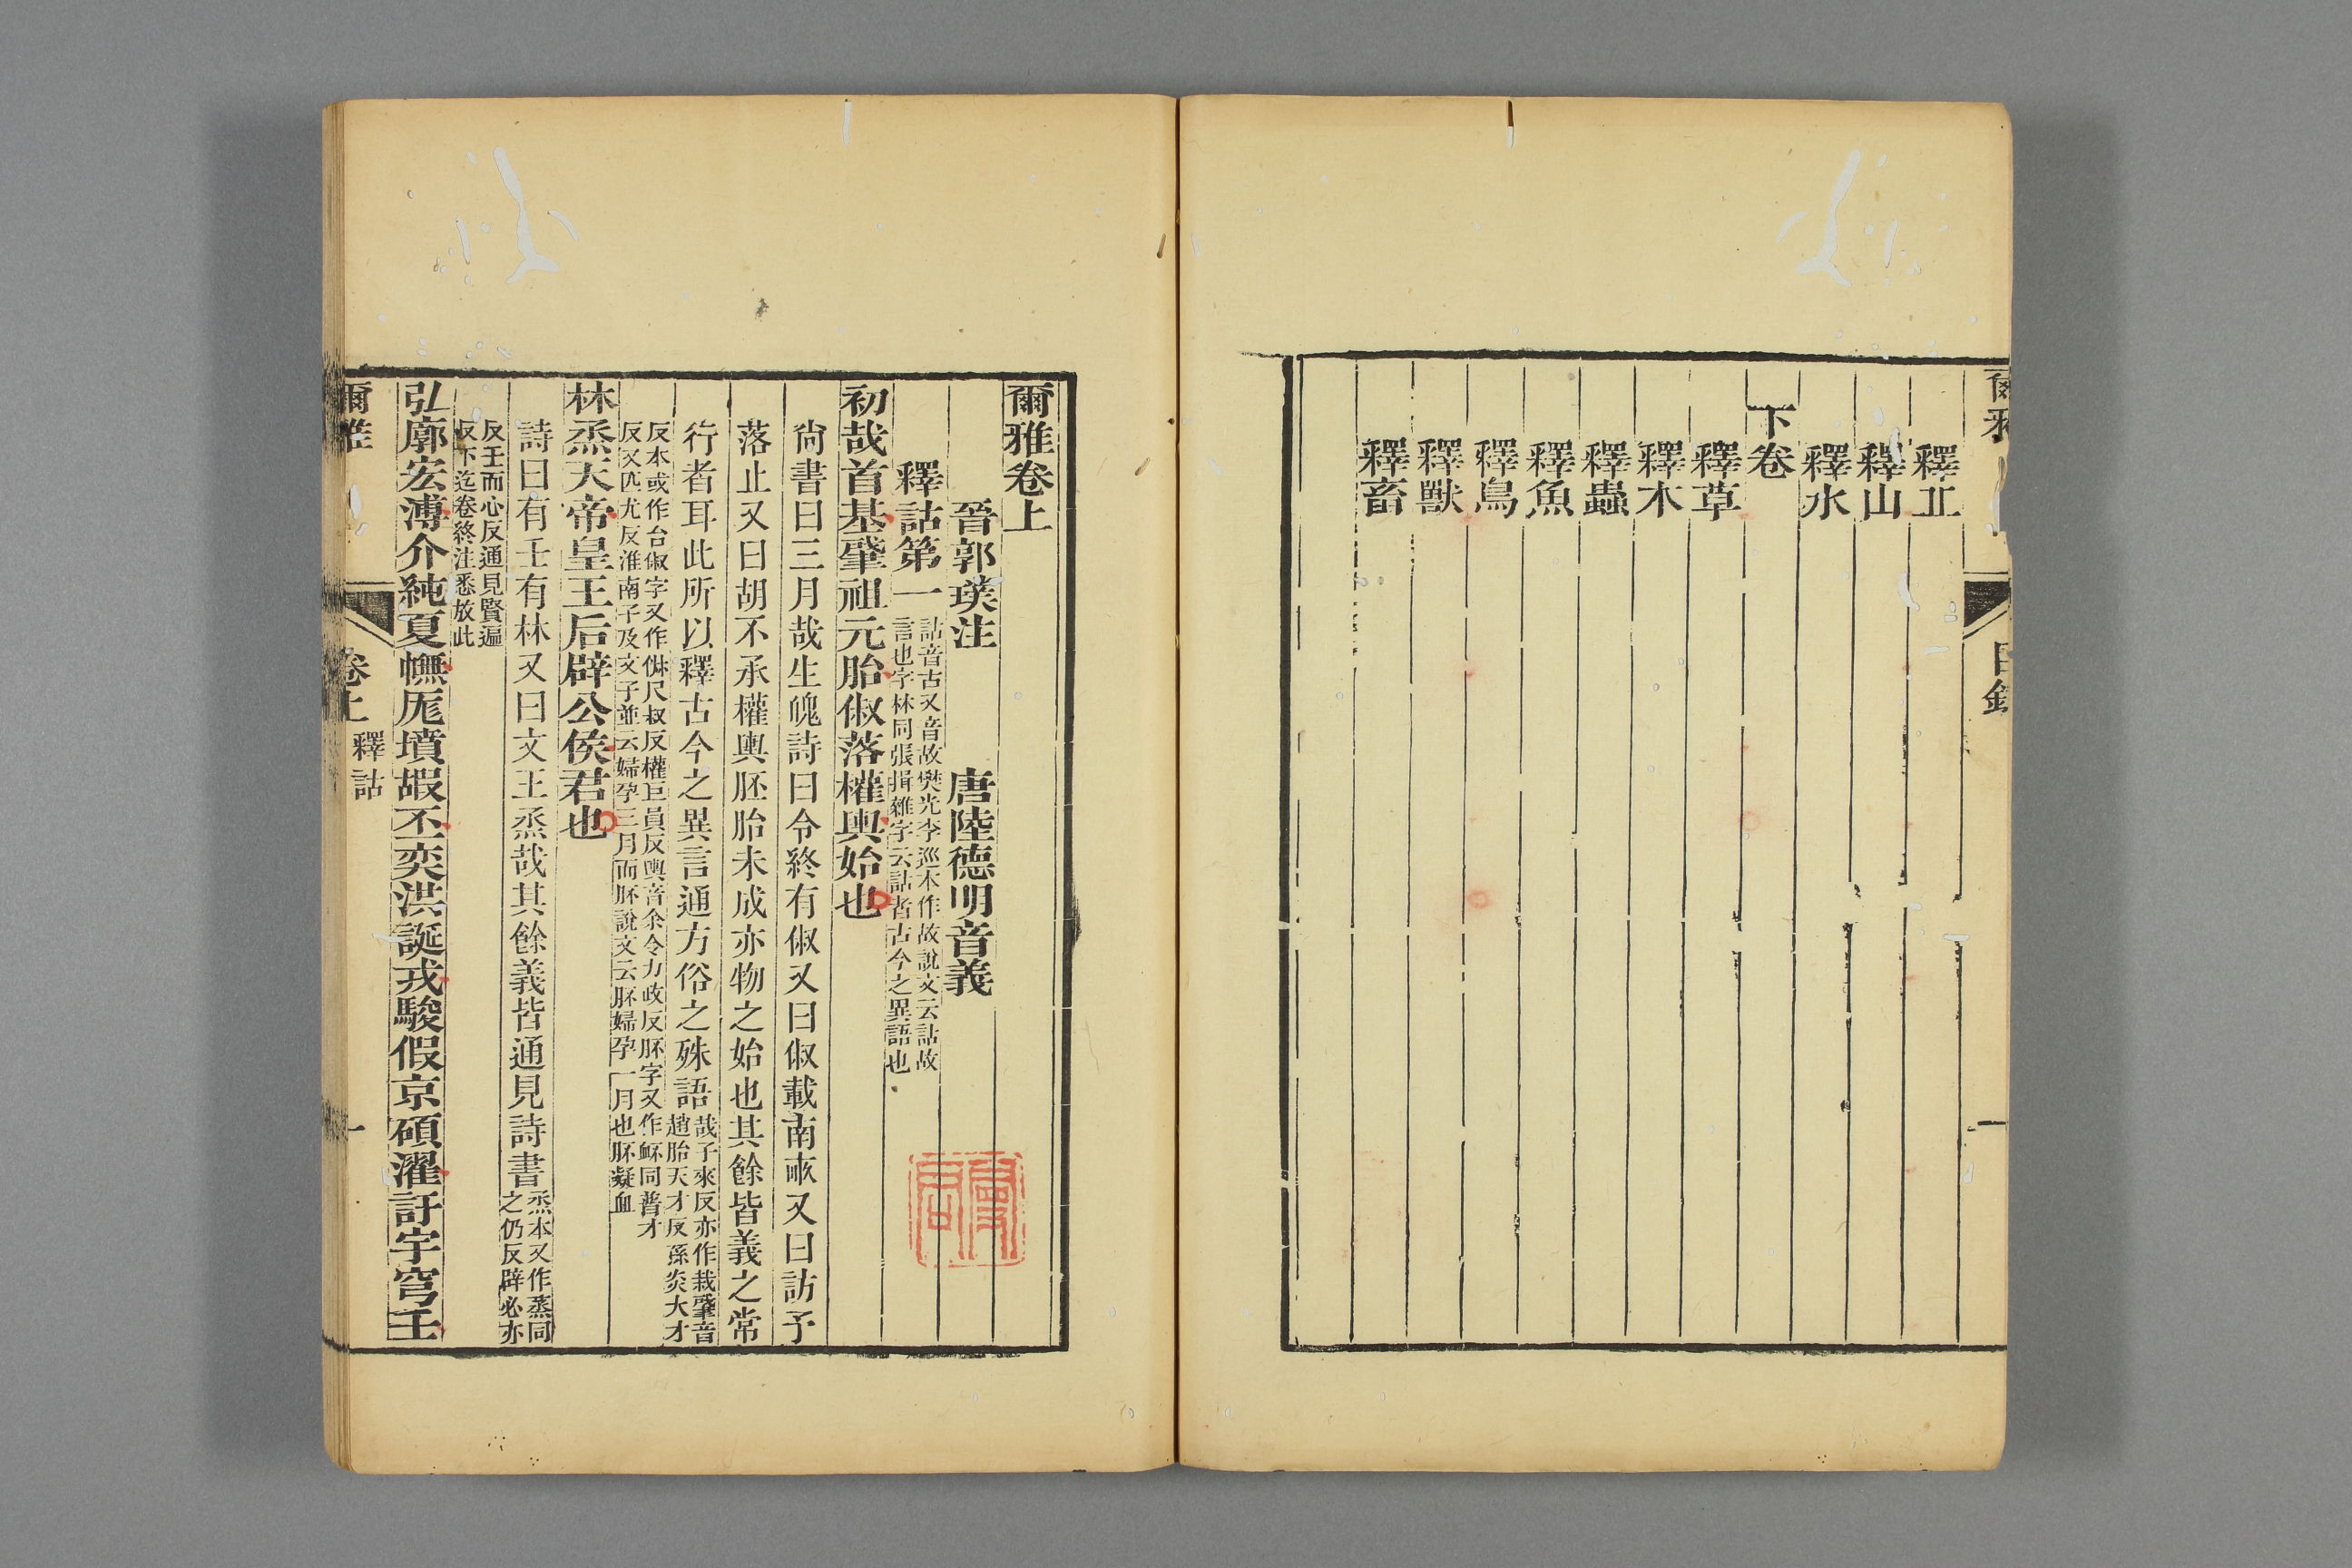 釋丠
釋山
釋水
下卷
釋草
釋木
釋蟲
釋魚
釋鳥
釋獸
釋畜
爾雅卷上
晉郭璞注 唐陸德明音義
釋詁第一 詁音古又音故樊光李巡本作故說文云詁故
言也字林同張揖雜字云詁者古今之異語也
初哉首基肈祖元胎俶落權輿始也
尙書曰三月哉生魄詩曰令終有俶又曰俶載南畞又曰訪予
落止又曰胡不承權輿胚胎未成亦物之始也其餘皆義之常
行者耳此所以釋古今之異言通方俗之殊語 哉子來反亦作栽肈音
趙胎天才反孫炎大才
反本或作台俶字又作㑐尺叔反權巨員反輿音余令力政反胚字又作䏽同普才
反又匹尤反淮南子及文子並云婦孕三月而胚說文云胚婦孕一月也胚凝血
林烝天帝皇王后辟公侯君也
詩曰有壬有林又曰文王烝哉其餘義皆通見詩書 烝本又作蒸同
之仍反辟必亦
反壬而心反通見賢遍
反下迄卷終注悉放此
弘廓宏溥介純夏幠厖墳嘏丕奕洪誕戎駿假京碩濯訏宇穹壬
爾雅 卷上 釋詁 一